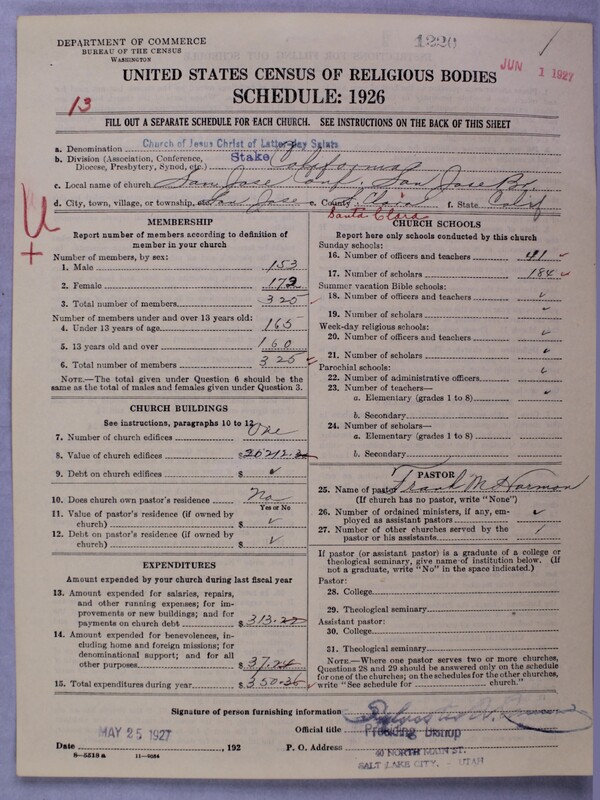 DEPARTMENT OF COMMERCE
BUREAU OF THE CENSUS
WASHINGTON
1220
JUN 1 1927
UNITED STATES CENSUS OF RELIGIOUS BODIES
SCHEDULE: 1926
13
FILL OUT A SEPARATE SCHEDULE FOR EACH CHURCH. SEE INSTRUCTIONS ON THE BACK OF THIS SHEET
a. Denomination Church of Jesus Christ of Latter-day Saints
b. Division (Association, Conference, Diocese, Presbytery, Synod, etc.) Stake California
c. Local name of church San Jose Conf. San Jose Br.
d. City, town, village, or township San Jose e. County S. Clara f. State Calif
Santa Clara
MEMBERSHIP
Report number of members according to definition of
member in your church
Number of members, by sex:
1. Male 153
2. Female 172
3. Total number of members 325
Number of members under and over 13 years old:
4. Under 13 years of age 165
5. 13 years old and over 160
6. Total number of members 325
NOTE.—The total given under Question 6 should be the
same as the total of males and females given under Question 3.
CHURCH BUILDINGS
See instructions, paragraphs 10 to 12
7. Number of church edifices One
8. Value of church edifices $
9. Debt on church edifices $
10. Does church own pastor's residence No
Yes or No
11. Value of pastor's residence (if owned by
church) $
12. Debt on pastor's residence (if owned by
church) $
EXPENDITURES
Amount expended by your church during last fiscal year
13. Amount expended for salaries, repairs,
and other running expenses; for im-
provements or new buildings; and for
payments on church debt $ 313.
14. Amount expended for benevolences,
including home and foreign missions; for
denominational support; and for all
other purposes $ 37.
15. Total expenditures during year $ 350.
CHURCH SCHOOLS
Report here only schools conducted by this church
Sunday schools:
16. Number of officers and teachers
17. Number of scholars 184
Summer vacation Bible schools:
18. Number of officers and teachers
19. Number of scholars
Week-day religious schools:
20. Number of officers and teachers
21. Number of scholars
Parochial schools:
22. Number of administrative officers
23. Number of teachers—
a. Elementary (grades 1 to 8)
b. Secondary
24. Number of scholars—
a. Elementary (grades 1 to 8)
b. Secondary
PASTOR
25. Name of pastor Frank M. Harmon
(If church has no pastor, write "None")
26. Number of ordained ministers, if any, em-
ployed as assistant pastors
27. Number of other churches served by the
pastor or his assistants
If pastor (or assistant pastor) is a graduate of a college or
theological seminary, give name of institution below. (If
not a graduate, write "No" in the space indicated.)
Pastor:
28. College
29. Theological seminary
Assistant pastor:
30. College
31. Theological seminary
NOTE.—Where one pastor serves two or more churches,
Questions 28 and 29 should be answered only on the schedule
for one of the churches; on the schedules for the other churches,
write "See schedule for church."
Signature of person furnishing information
Official title Presiding Bishop
Date MAY 25 1927, 192 P. O. Address 40 NORTH MAIN ST.
SALT LAKE CITY, - UTAH
8—5518 a 11—9084